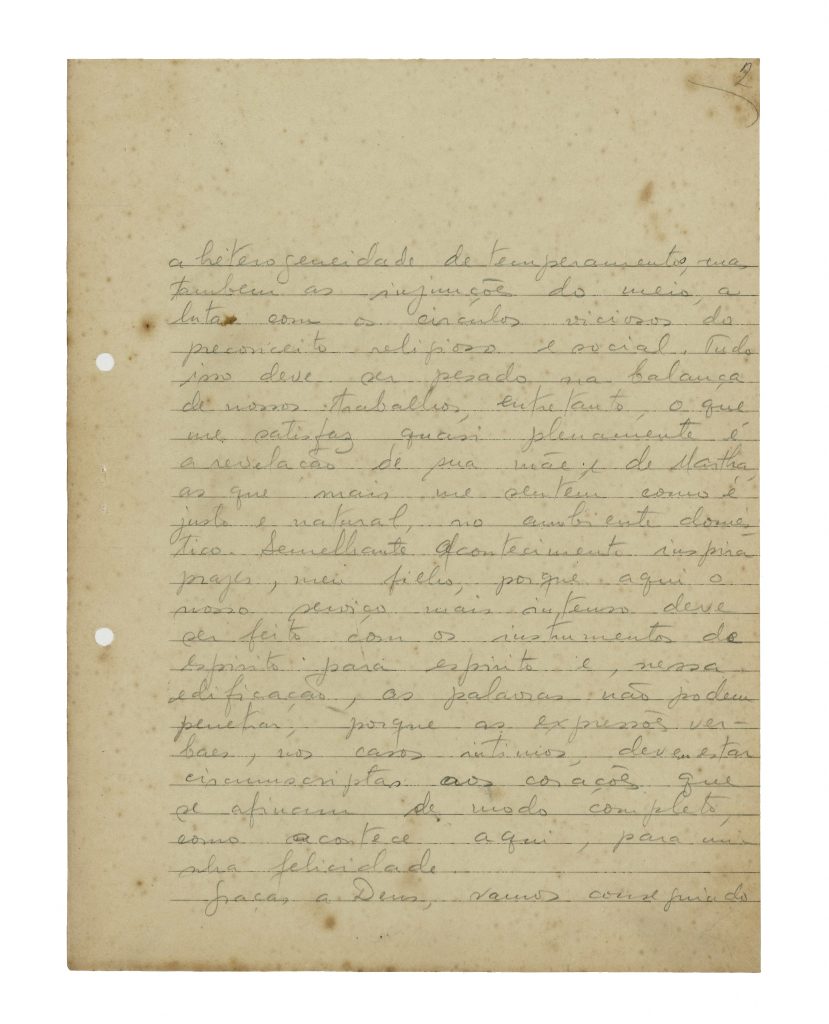 2
a heterogeneidade de temperamentos, mas
tambem as injunções do meio, a
luta com os circulos viciosos do
preconceito religioso e social. Tudo
isso deve ser pesado na balança
de nossos trabalhos, entretanto, o que
me satisfaz quasi plenamente é
a revelação de sua mãe e de Martha,
as que mais me sentem como é
justo e natural, no ambiente domés-
tico. Semelhante acontecimento inspira
prazer, meu filho, porque aqui o
nosso serviço mais intenso deve
ser feito com os instrumentos de
espirito para espirito e, nessa
edificação, as palavras não podem
penetrar, porque as expressões ver-
baes, nos casos intimos, devem estar
circumscriptas aos corações que
se afinam de modo completo,
como acontece aqui, para mi-
nha felicidade
Graças a Deus, vamos conseguindo